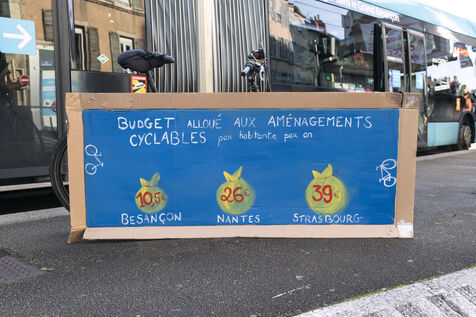 BUDGET ALLOUÉ AUX AMÉNAGEMENTS
CYCLABLES par habitante par an
10,5€ 26€ 39€
BESANÇON NANTES STRASBOURG